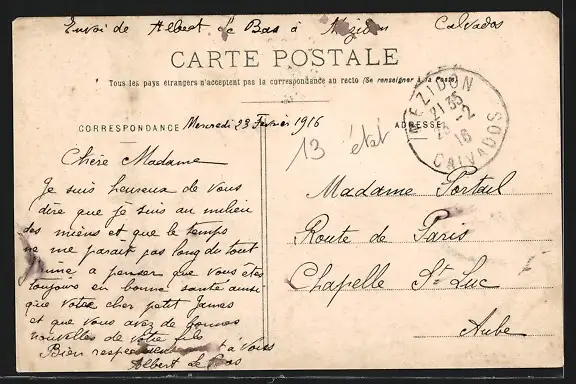 Envoi de Albert Le Bas à Mezidon Calvados
CARTE POSTALE
Tous les pays étrangers n'acceptent pas la correspondance au recto (Se renseigner à la Poste)
CORRESPONDANCE Mercredi 23 Février 1916
ADRESSE
MEZIDON
21 35
23 -2
16
CALVADOS
13 état
Chère Madame
Je suis heureux de vous
dire que je suis au milieu
des miens et que le temps
ne me parait pas long du tout
a penser que vous êtes
toujours en bonne santé ainsi
que votre cher petit James
et que vous avez de bonnes
nouvelles de votre fils
Bien à Vous
Albert Le Bas
Madame Portail
Route de Paris
Chapelle St Luc
Aube